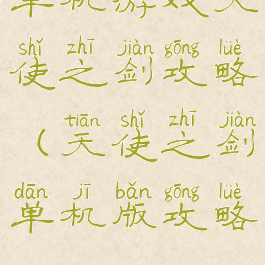 单机游戏天
shǐ zhī jiàn gōng lüè
使之剑攻略
tiān shǐ zhī jiàn
（天使之剑
dān jī bǎn gōng lüè
单机版攻略